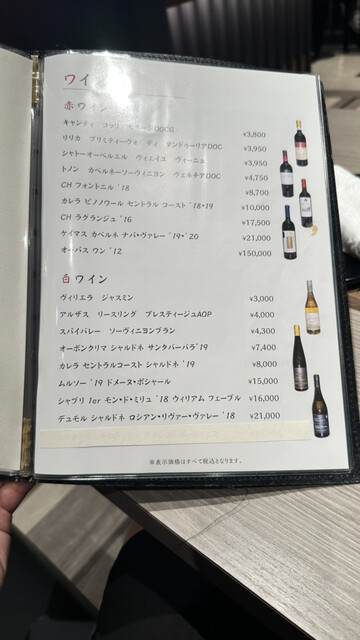 ワイ
赤ワイン
キャンティ コッリ DOCG ¥3,800
リリカ プリミティーヴォ ディ マンドゥーリアDOC ¥3,950
シャトーオーベルエル ヴィエイユ ヴィーニュ ¥3,950
トノン カベルネーソーヴィニヨン ヴェネチアDOC ¥4,750
CH フォントニル '18 ¥8,700
カレラ ピノノワール セントラル コースト '18・19 ¥10,000
CH ラグランジュ '16 ¥17,500
ケイマス カベルネ ナパ・ヴァレー '19・'20 ¥21,000
オーパス ワン '12 ¥150,000
白ワイン
ヴィリエラ ジャスミン ¥3,000
アルザス リースリング プレスティージュAOP ¥4,000
スパイバレー ソーヴィニヨンブラン ¥4,300
オーボンクリマ シャルドネ サンタバーバラ'19 ¥7,400
カレラ セントラルコースト シャルドネ '19 ¥8,000
ムルソー '19 ドメーヌ・ポシャール ¥15,000
シャブリ 1er モン・ド・ミリュ '18 ウィリアム フェーブル ¥16,000
デュモル シャルドネ ロシアン・リヴァー・ヴァレー '18 ¥21,000
※表示価格はすべて税込となります。